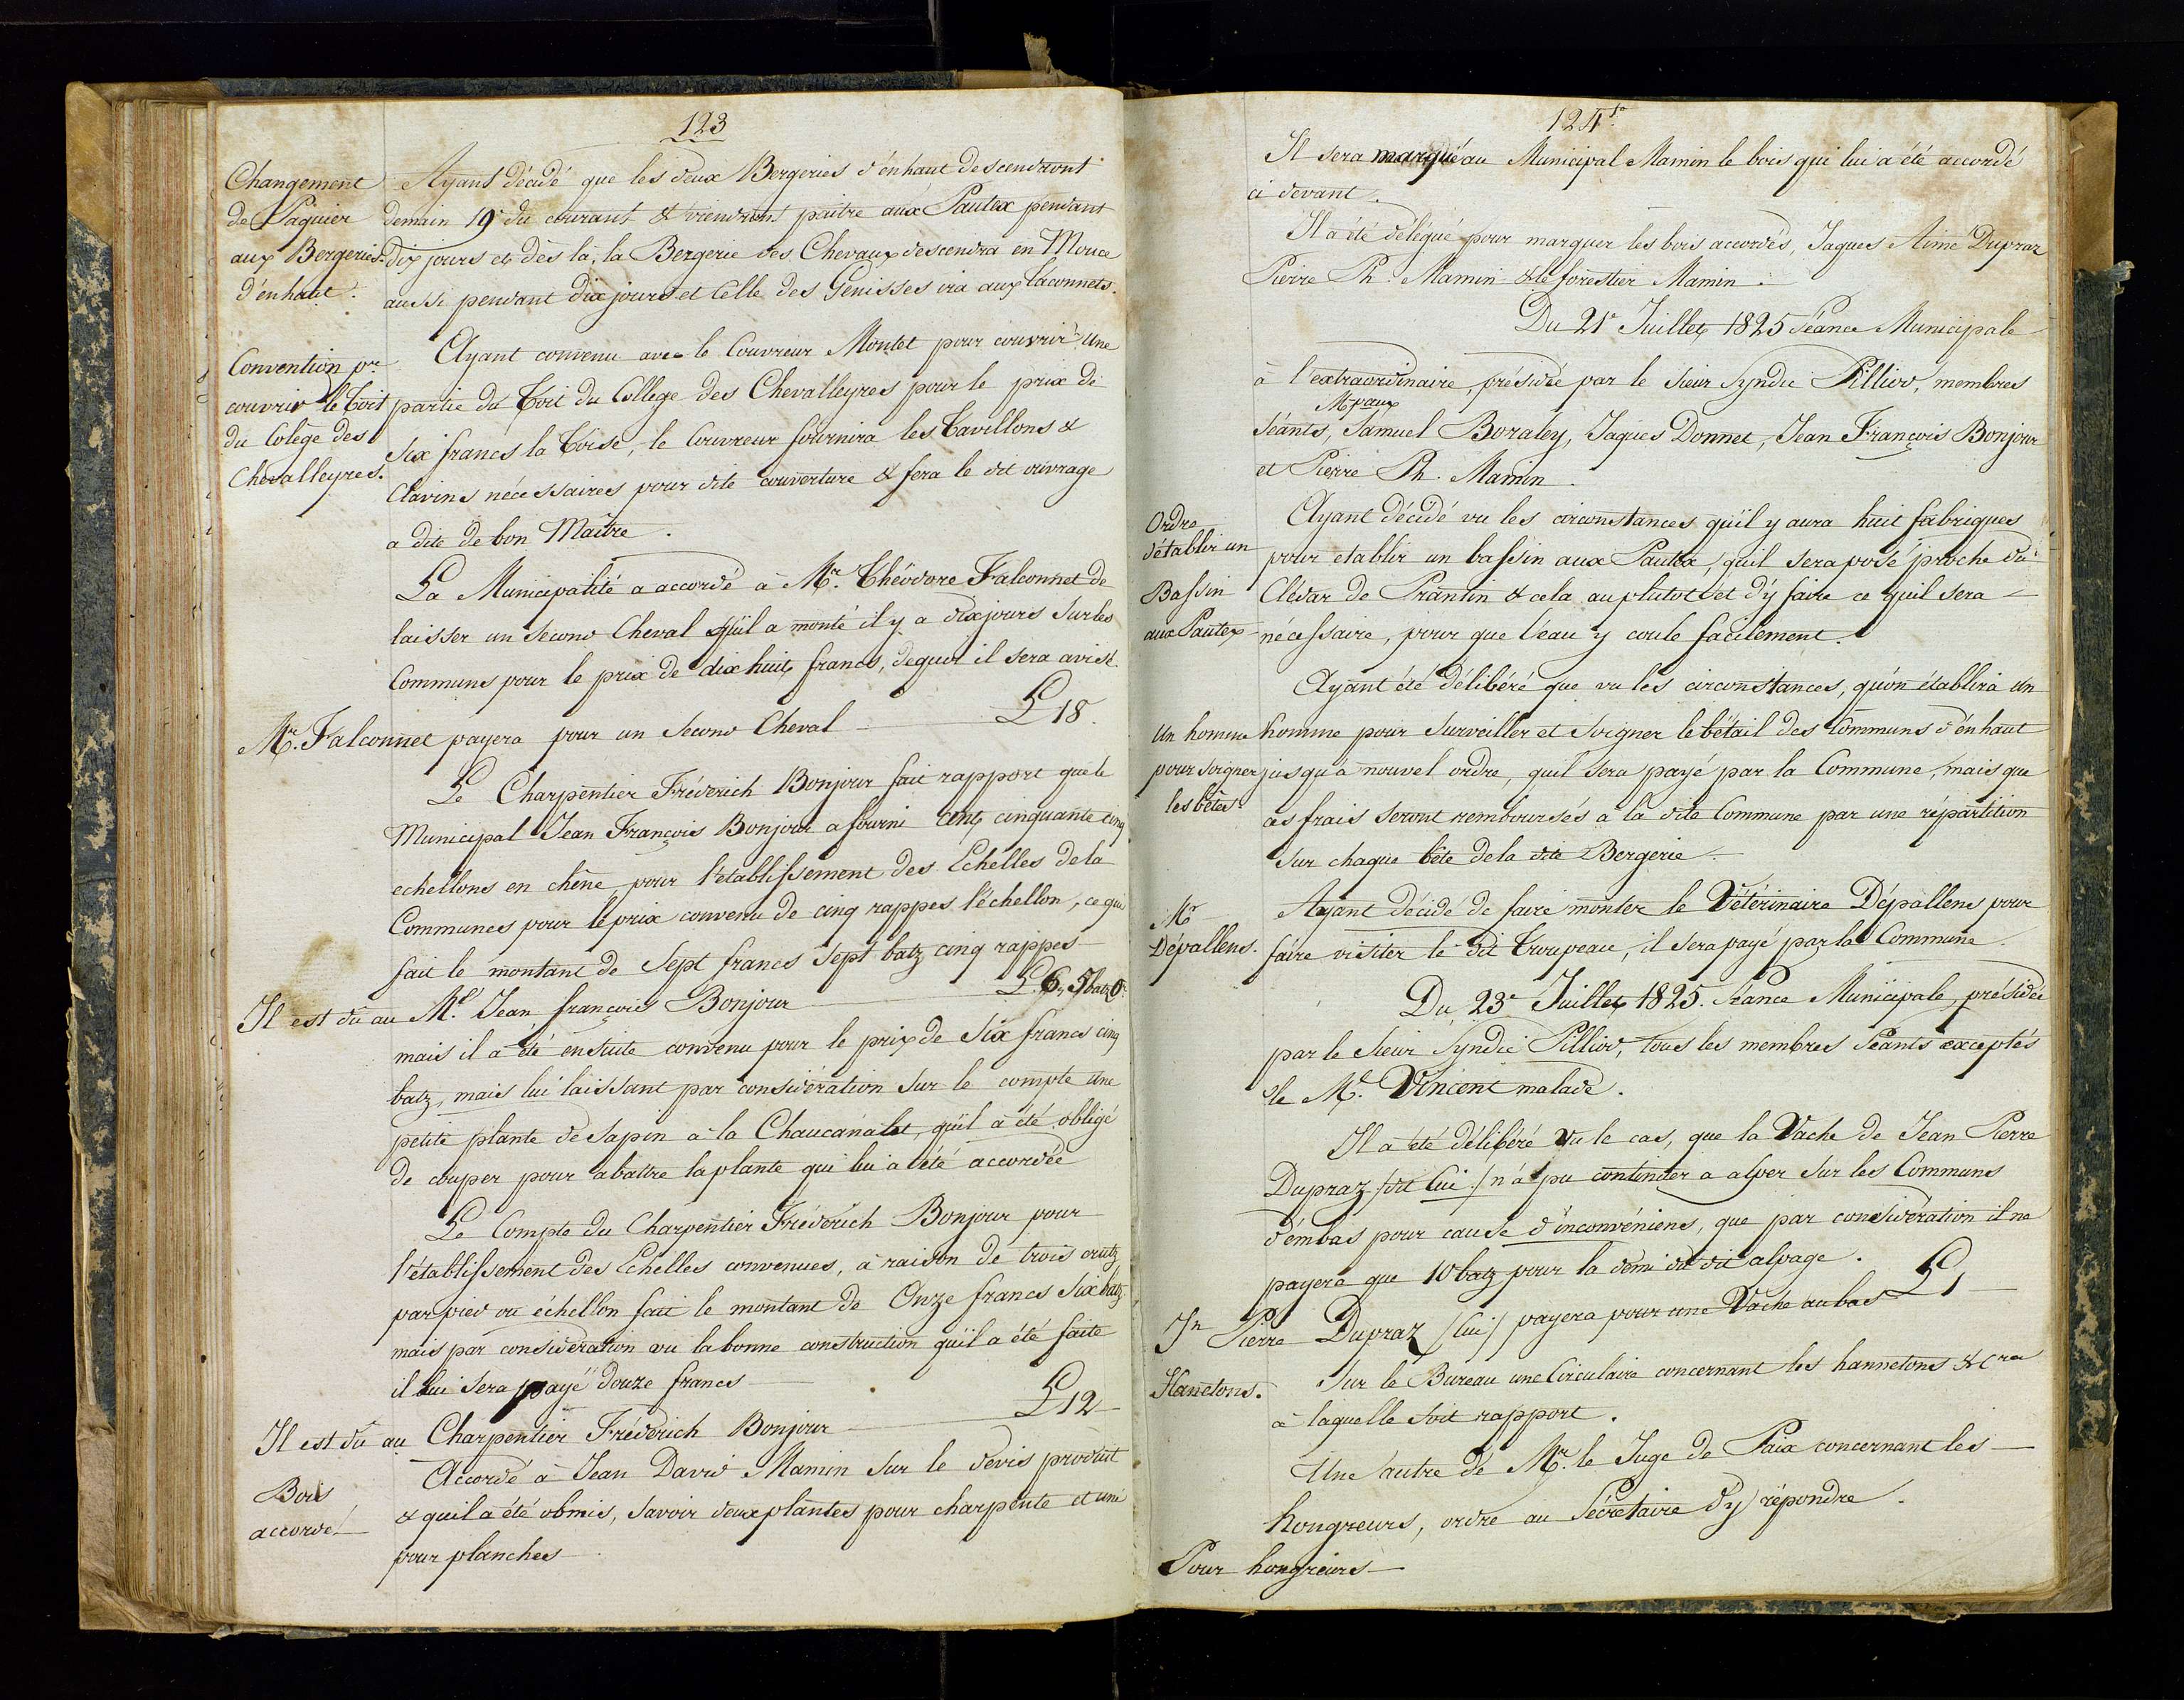 123
Changement
de Pâquier
aux Bergeries
d'enhaut.
Ayant décidé que les deux Bergeries d'énhaut descendront
demain 19e du courant & viendront paitre aux Pautex pendant
dix jours et dès là, la Bergerie des Chevaux descendra en Mouce
aussi pendant dix jours et Celle des Génisses ira aux Laconnets.
Convention pr.
couvrir le Toit
du Colège des
Chevalleyres.
Ayant convenu avec le Couvreur Montet pour couvrir une
partie du Toit du College des Chevalleyres pour le prix de
Six francs la Toise, le Couvreur fournira les Tavillons &
Clavins nécessaires pour dite couverture & fera le dit ouvrage
a dite de bon Maître.
La Municipalité a accordé à Mr. Théodore Falconnet de
laisser un second Cheval qu'il a monté il y a dix jours sur les
Communs pour le prix de dix huit francs, dequoi il sera avisé.
Mr. Falconnet payera pour un second Cheval — L 18.
Le Charpentier Fréderich Bonjour fait rapport que le
Municipal Jean François Bonjour a fourni cent cinquante cinq
echellons en chêne pour l'etablissement des Echelles de la
Communes pour le prix convenu de cinq rappes l'échellon, ce qui
fait le montant de Sept francs sept batz cinq rappes
Il est dû au Ml. Jean françois Bonjour — L 6, 5 batz 0r.
mais il a été ensuite convenu pour le prix de Six francs cinq
batz, mais lui laissant par considération sur le compte une
petite plante de sapin à la Chaucanalet, qu'il a été obligé
de couper pour abattre la plante qui lui a été accordée
Le Compte du Charpentier Fréderich Bonjour pour
l'établissement des Echelles convenues, à raison de trois crutz
par pied ou échellon fait le montant de Onze francs Six batz
mais par considération vu la bonne construction qu'il a été faite
il lui sera payé douze francs
Il est dû au Charpentier Fréderich Bonjour — L 12
Bois
accordé
Accordé à Jean David Mamin sur le dévis produit
& quil a été obmis, savoir deux plantes pour charpente et une
pour planches
124
Il sera marqué au Municipal Mamin le bois qui lui a été accordé
ci devant.
Il a été délégué pour marquer les bois accordés, Jaques Aimé Dupraz
Pierre Ph. Mamin & le forestier Mamin.
Du 21e Juillet 1825 Séance Municipale
à l'extraordinaire, présidée par le Sieur Syndic Pilliod, membres
Mpaux
Séants, Samuel Boraley, Jaques Donnet, Jean François Bonjour
et Pierre Ph. Mamin.
Ordre
d'établir un
Bassin
aux Pautex
Ayant décidé vu les circonstances qu'il y aura huit fabriques
pour etablir un bassin aux Pautex, quil sera posé proche du
Clédar de Prantin & cela au plutot et d'y faire ce quil sera
nécessaire, pour que l'eau y coule facilement.
Ayant été délibéré que vu les circonstances, qu'on établira un
Un homme
pour soigner
les bêtes
homme pour surveiller et soigner le bétail des Communs d'énhaut
jusqu'à nouvel ordre, quil sera payé par la Commune, mais que
ces frais seront remboursés a la dite Commune par une répartition
sur chaque bête de la dite Bergerie.
Mr
Dépallens.
Ayant décidé de faire monter le Vétérinaire Dépallens pour
faire visiter le dit Troupeau, il sera payé par la Commune.
Du 23e Juillet 1825. Séance Municipale, présidée
par le Sieur Syndic Pilliod, tous les membres Séants exceptés
le Ml. Vincent malade.
Il a été délibéré vu le cas, que la Vache de Jean Pierre
Dupraz /dit Cui/ n'a pu continuer a alper sur les Communs
d'émbas pour cause d'inconvéniens, que par considération il ne
payera que 10 batz pour la demi du dit alpage.
Jn Pierre Dupraz /Cui/ payera pour une Vache au bas L 1
Hannetons.
Sur le Bureau une Circulaire concernant les hannetons &cra
à laquelle soit rapport.
Une autre de Mr. le Juge de Paix concernant les
hongreurs, ordre au Sécretaire d'y répondre.
Pour hongreurs